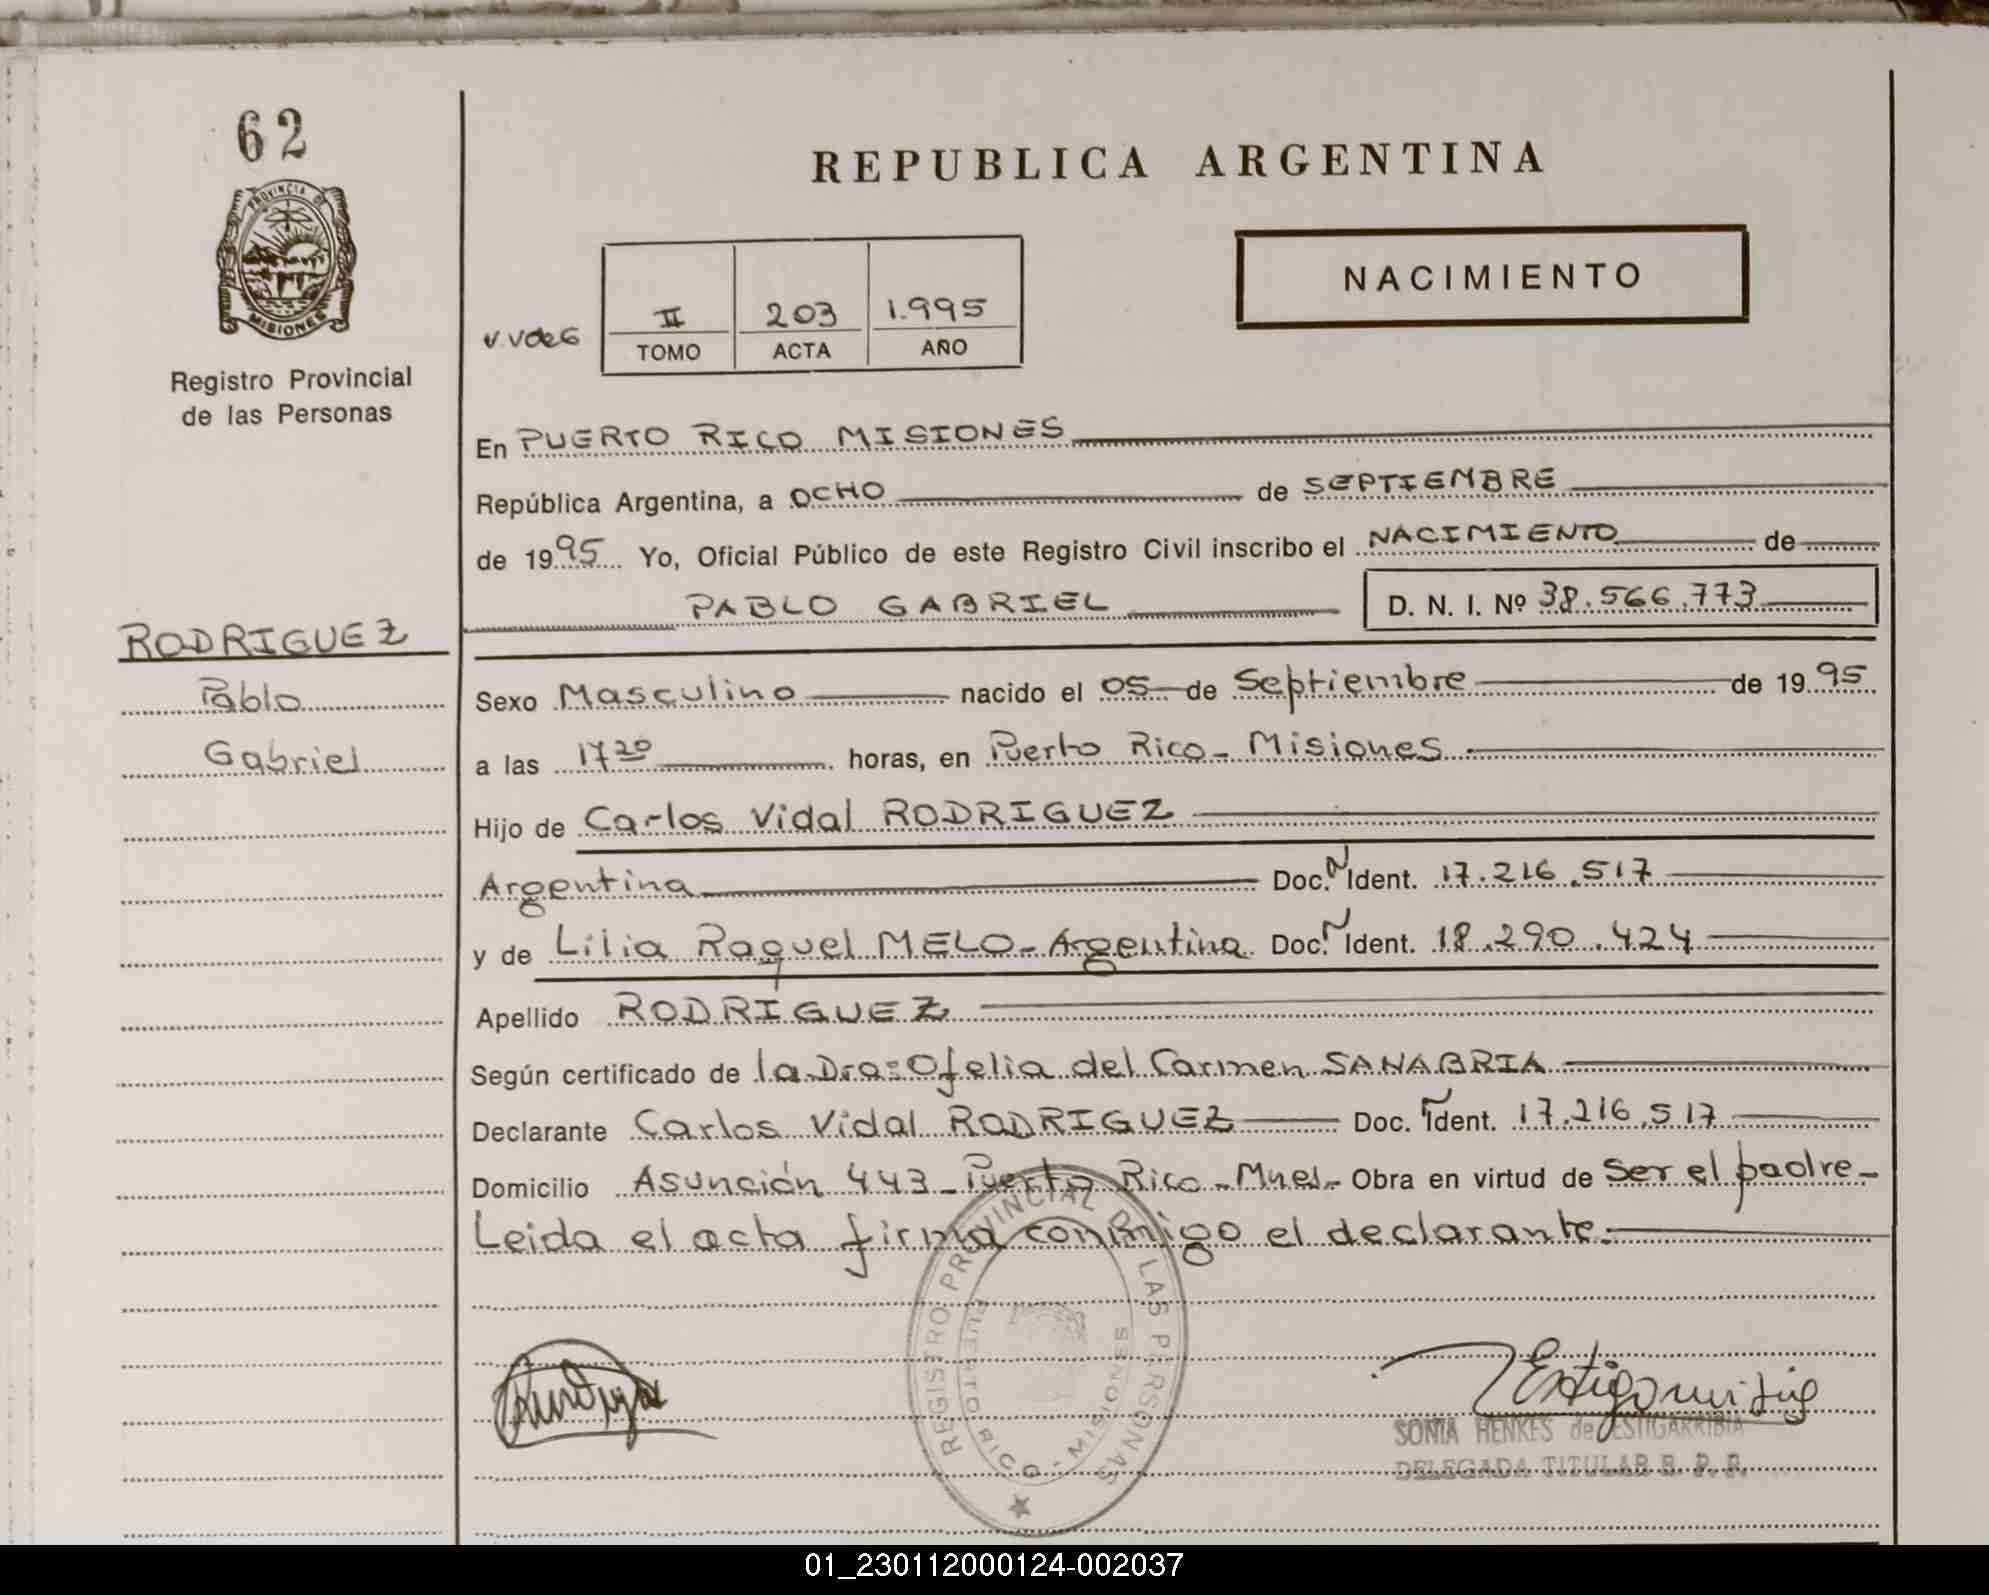 62
PROVINCIA DE
MISIONES
Registro Provincial
de las Personas
RODRIGUEZ
Pablo
Gabriel
REPUBLICA ARGENTINA
NACIMIENTO
II 203 1.995
TOMO ACTA AÑO
En PUERTO RICO MISIONES
República Argentina, a OCHO de SEPTIEMBRE
de 1995 Yo, Oficial Público de este Registro Civil inscribo el NACIMIENTO de
PABLO GABRIEL D. N. I. Nº 38.566.773
Sexo Masculino nacido el 05 de Septiembre de 1995
a las 17 20 horas, en Puerto Rico - Misiones
Hijo de Carlos Vidal RODRIGUEZ
Argentina Doc. N Ident. 17.216.517
y de Lilia Raquel MELO - Argentina Doc. N Ident. 18.290.424
Apellido RODRIGUEZ
Según certificado de la Dra: Ofelia del Carmen SANABRIA
Declarante Carlos Vidal RODRIGUEZ Doc. Ident. 17.216.517
Domicilio Asunción 443 - Puerto Rico - Mnes - Obra en virtud de Ser el padre -
Leida el acta firma conmigo el declarante.
REGISTRO PROVINCIAL DE LAS PERSONAS
PUERTO RICO - MISIONES
SONIA HENKES de ESTIGARRIBIA
DELEGADA TITULAR R. P. P.
01_230112000124-002037